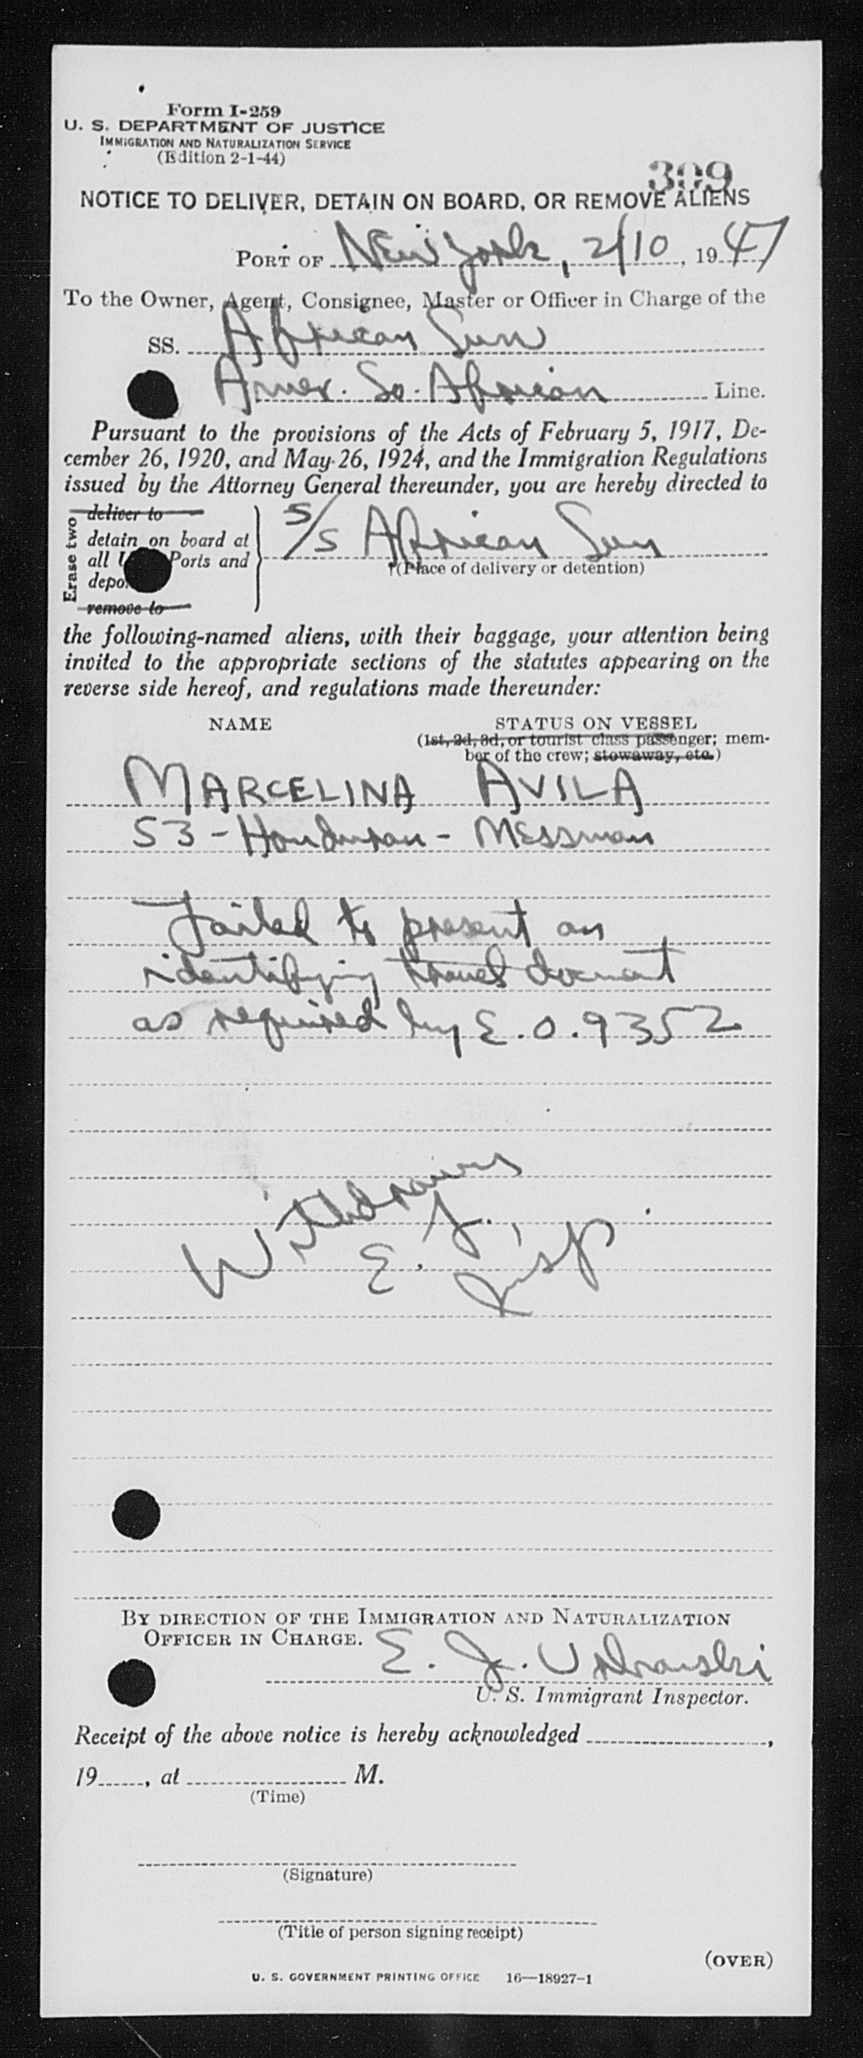 Form I-259
U. S. DEPARTMENT OF JUSTICE
IMMIGRATION AND NATURALIZATION SERVICE
(Edition 2-1-44)
309
NOTICE TO DELIVER, DETAIN ON BOARD, OR REMOVE ALIENS
PORT OF New York, 2/10, 1947
To the Owner, Agent, Consignee, Master or Officer in Charge of the
SS. African Sun
Amer. So. African Line.
Pursuant to the provisions of the Acts of February 5, 1917, De-
cember 26, 1920, and May 26, 1924, and the Immigration Regulations
issued by the Attorney General thereunder, you are hereby directed to
Erase two
deliver to
detain on board at
all Ports and
depo
remove to
S/S African Sun
†(Place of delivery or detention)
the following-named aliens, with their baggage, your attention being
invited to the appropriate sections of the statutes appearing on the
reverse side hereof, and regulations made thereunder:
NAME STATUS ON VESSEL
(1st, 2d, 3d, or tourist class passenger; mem-
ber of the crew; stowaway, etc.)
MARCELINA AVILA
53 - Honduran - Messman
Failed to present an
identifying travel document
as required by E.O. 9352
Withdrawn
E. J.
Insp.
BY DIRECTION OF THE IMMIGRATION AND NATURALIZATION
OFFICER IN CHARGE.
E. J.
U. S. Immigrant Inspector.
Receipt of the above notice is hereby acknowledged ,
19 , at M.
(Time)
(Signature)
(Title of person signing receipt)
(OVER)
U. S. GOVERNMENT PRINTING OFFICE 16—18927-1